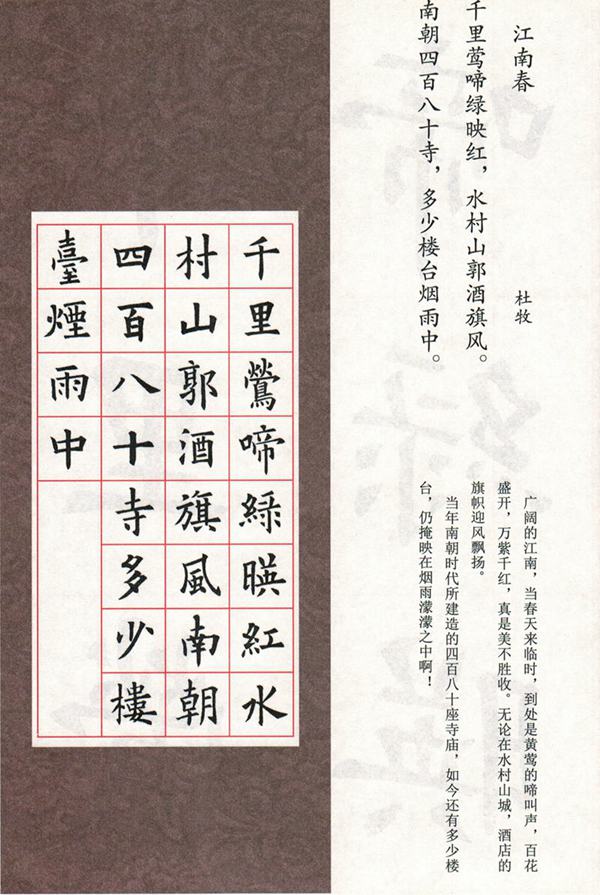 江南春
杜牧
千里莺啼绿映红，水村山郭酒旗风。
南朝四百八十寺，多少楼台烟雨中。
广阔的江南，当春天来临时，到处是黄莺的啼叫声，百花
盛开，万紫千红，真是美不胜收。无论在水村山城，酒店的
旗帜迎风飘扬。
当年南朝时代所建造的四百八十座寺庙，如今还有多少楼
台，仍掩映在烟雨濛濛之中啊！
千里鶯啼綠暎紅水
村山郭酒旗風南朝
四百八十寺多少樓
臺煙雨中